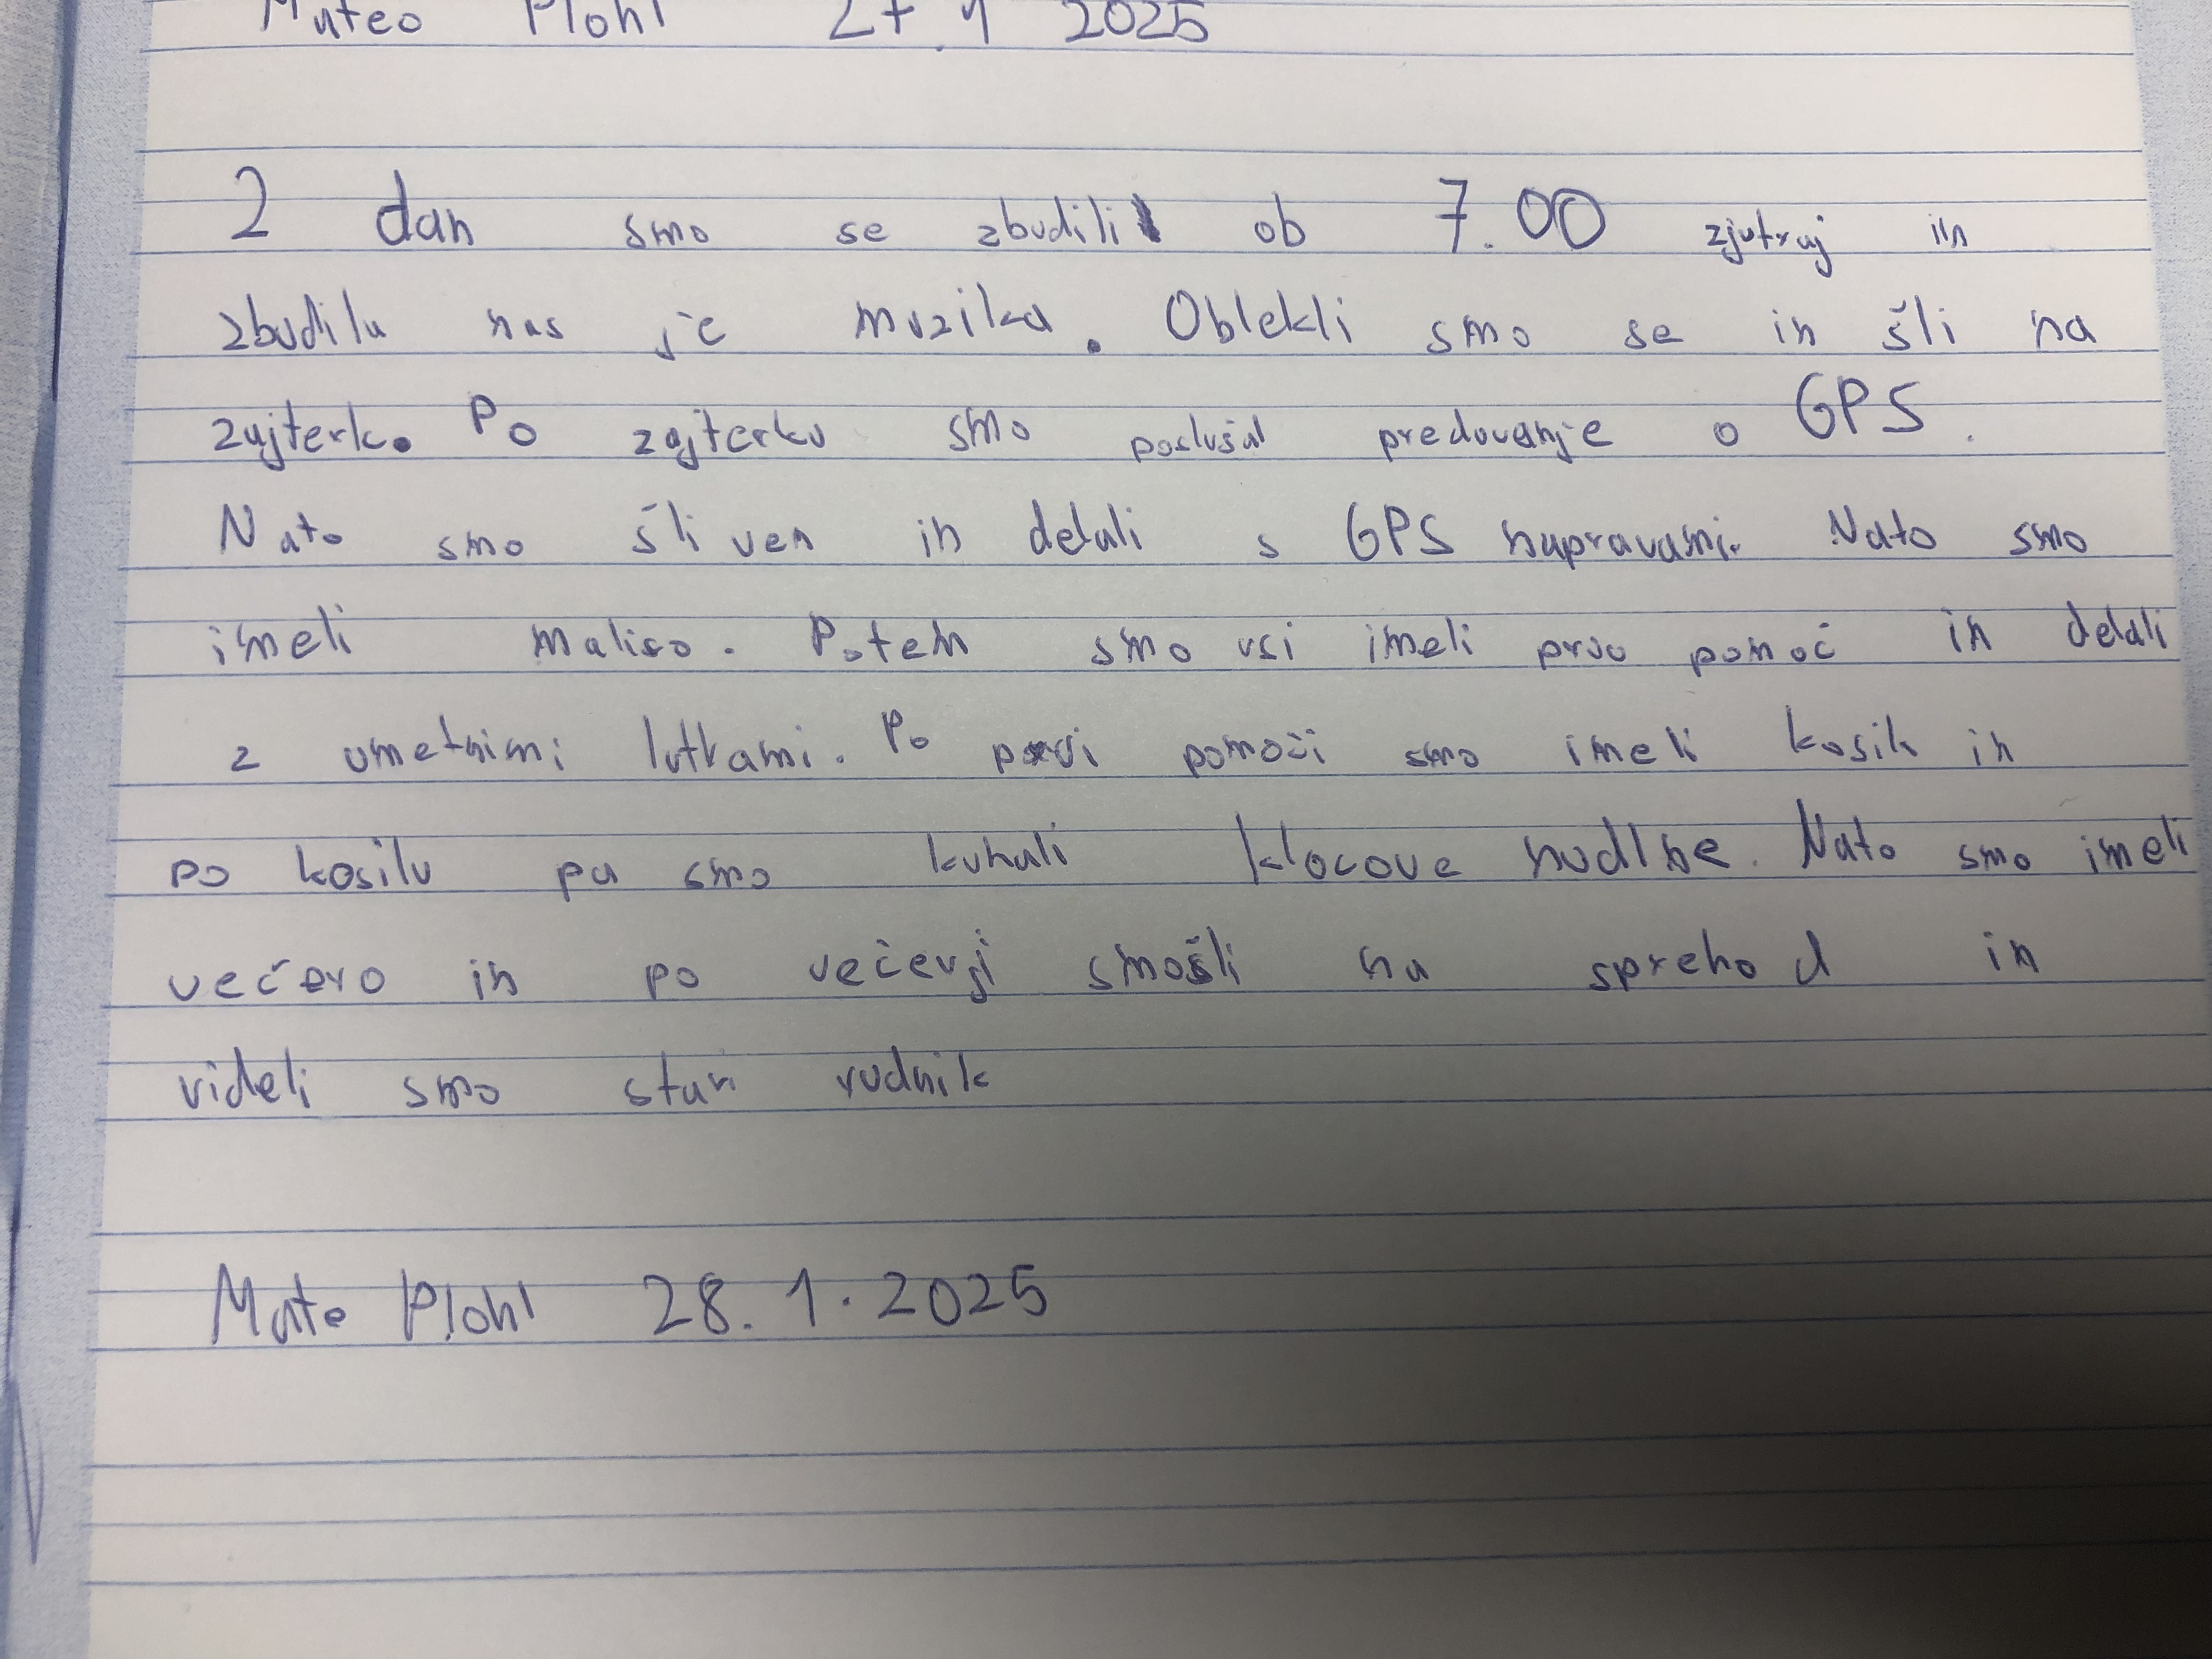 Mateo Plohl 27.1 2025
2 dan smo se zbudili ob 7.00 zjutraj in
zbudila nas je muzika. Oblekli smo se in šli na
zajterk. Po zajterku smo poslušal predavanje o GPS.
Nato smo šli ven in delali s GPS napravami. Nato smo
imeli malico. Potem smo vsi imeli prvo pomoč in delali
z umetnimi lutkami. Po prvi pomoči smo imeli kosilo in
po kosilu pa smo kuhali klocove nudlne. Nato smo imeli
večero in po večerji smo šli na sprehod in
videli smo stari rudnik
Mate Plohl 28. 1. 2025